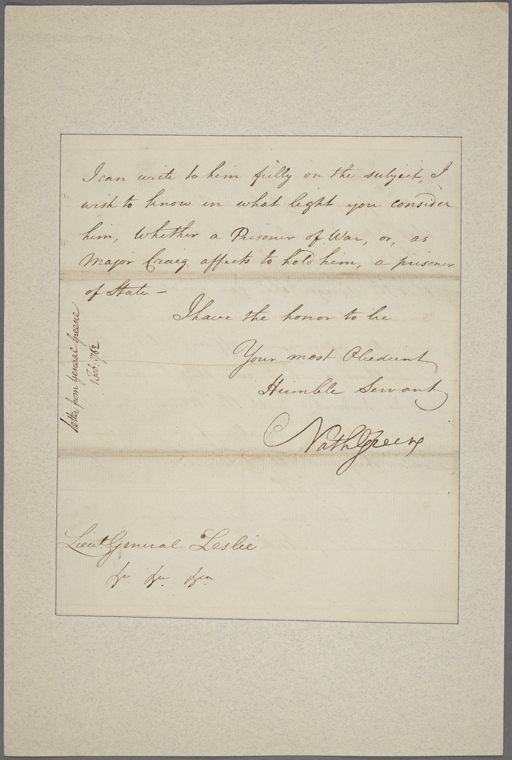 I can write to him fully on the subject, I
wish to know in what light you consider
him, Whether a Prisoner of War, or, as
Major Craig affects to hold him, a prisoner
of State –
I have the honor to be
Your most Obedient
Humble Servant
Nath Greene
Lieut General Leslie
&c &c &c
Letter from General Greene
1782